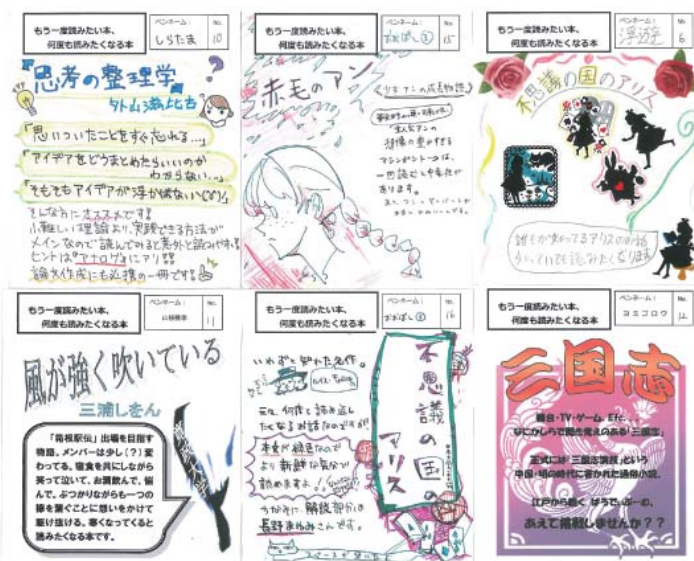 もう一度読みたい本、
何度も読みたくなる本
ペンネーム:
しらたま
No.
10
『思考の整理学』
外山滋比古
「思いついたことをすぐ忘れる…」
「アイデアをどうまとめたらいいのか
わからない…」
「そもそもアイデアが浮かばない
そんな方にオススメです!
小難しい理論より、実践できる方法が
メインなので読んでみると意外と読みやすい!
ヒントは"アナログ"にアリ!!
論文作成にも必携の一冊です!
もう一度読みたい本、
何度も読みたくなる本
ペンネーム:
おおばし①
No.
15
赤毛のアン
少女アンの成長物語
主人公アンの
想像の豊かすぎる
マシンガントークは、
一度読むと中毒性が
あります。
もう一度読みたい本、
何度も読みたくなる本
ペンネーム:
浮遊
No.
6
不思議の国のアリス
誰もが知ってるアリスのお話
知っていても読みたくなります
もう一度読みたい本、
何度も読みたくなる本
ペンネーム:
No.
11
風が強く吹いている
三浦しをん
「箱根駅伝」出場を目指す
物語。メンバーは少し(?)変
わってる。寝食を共にしながら
笑って泣いて、お酒飲んで、悩
んで、ぶつかりながらも一つの
襷を繋ぐことに想いをかけて
駆け抜ける。寒くなってくると
読みたくなる本です。
もう一度読みたい本、
何度も読みたくなる本
ペンネーム:
おおばし②
No.
16
いわずと知れた名作。
元々、何度も読み返し
たくなるお話なのですが
本文が緑色なので
より新鮮な気分で
読めますよ!!
ちなみに、解説部分は
長野まゆみさんです。
不思議の国の
アリス
もう一度読みたい本、
何度も読みたくなる本
ペンネーム:
ヨミコロウ
No.
12
三国志
舞台・TV・ゲーム、Etc.
なにかしらで聞き覚えのある「三国志」
正式には「三国志演義」という
中国・明の時代に書かれた通俗小説。
江戸から続く ぱうでぃぶーむ、
あえて挑戦しませんか??